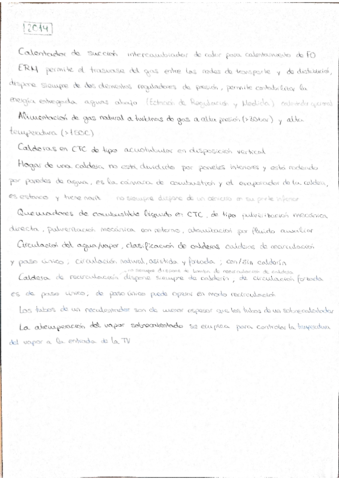 2014
Calentador de succión intercambiador de calor para calentamiento de FO
ERM permite el trasvase del gas entre las redes de transporte y de distribución,
dispone siempre de dos elementos reguladores de presión, permite contabilizar la
energía entregada aguas abajo (Estación de Regulación y Medida)
Alimentación de gas natural a turbinas de gas a alta presión y alta
temperatura
Calderas en CTC de tipo acuotubulares en disposición vertical
Hogar de una caldera, no está dividido por paneles interiores y está rodeado
por paredes de agua, es la cámara de combustión y el evaporador de la caldera,
es estanco y tiene no siempre dispone de un cenicero en su parte inferior
Quemadores de combustible líquido en CTC, de tipo pulverización mecánica
directa, pulverización mecánica con retorno, atomización por fluido auxiliar
Circulación del agua/vapor, clasificación de calderas calderas de recirculación
y paso único, circulación natural, asistida y forzada, con/sin calderín
Caldera de recirculación dispone siempre de calderín, de circulación forzada
es de paso único, de paso único puede operar en modo recirculación
Los tubos de un recalentador son de menor espesor que los tubos de un sobrecalentador
La atemperación del vapor sobrecalentado se emplea para controlar la temperatura
del vapor a la entrada de la TV